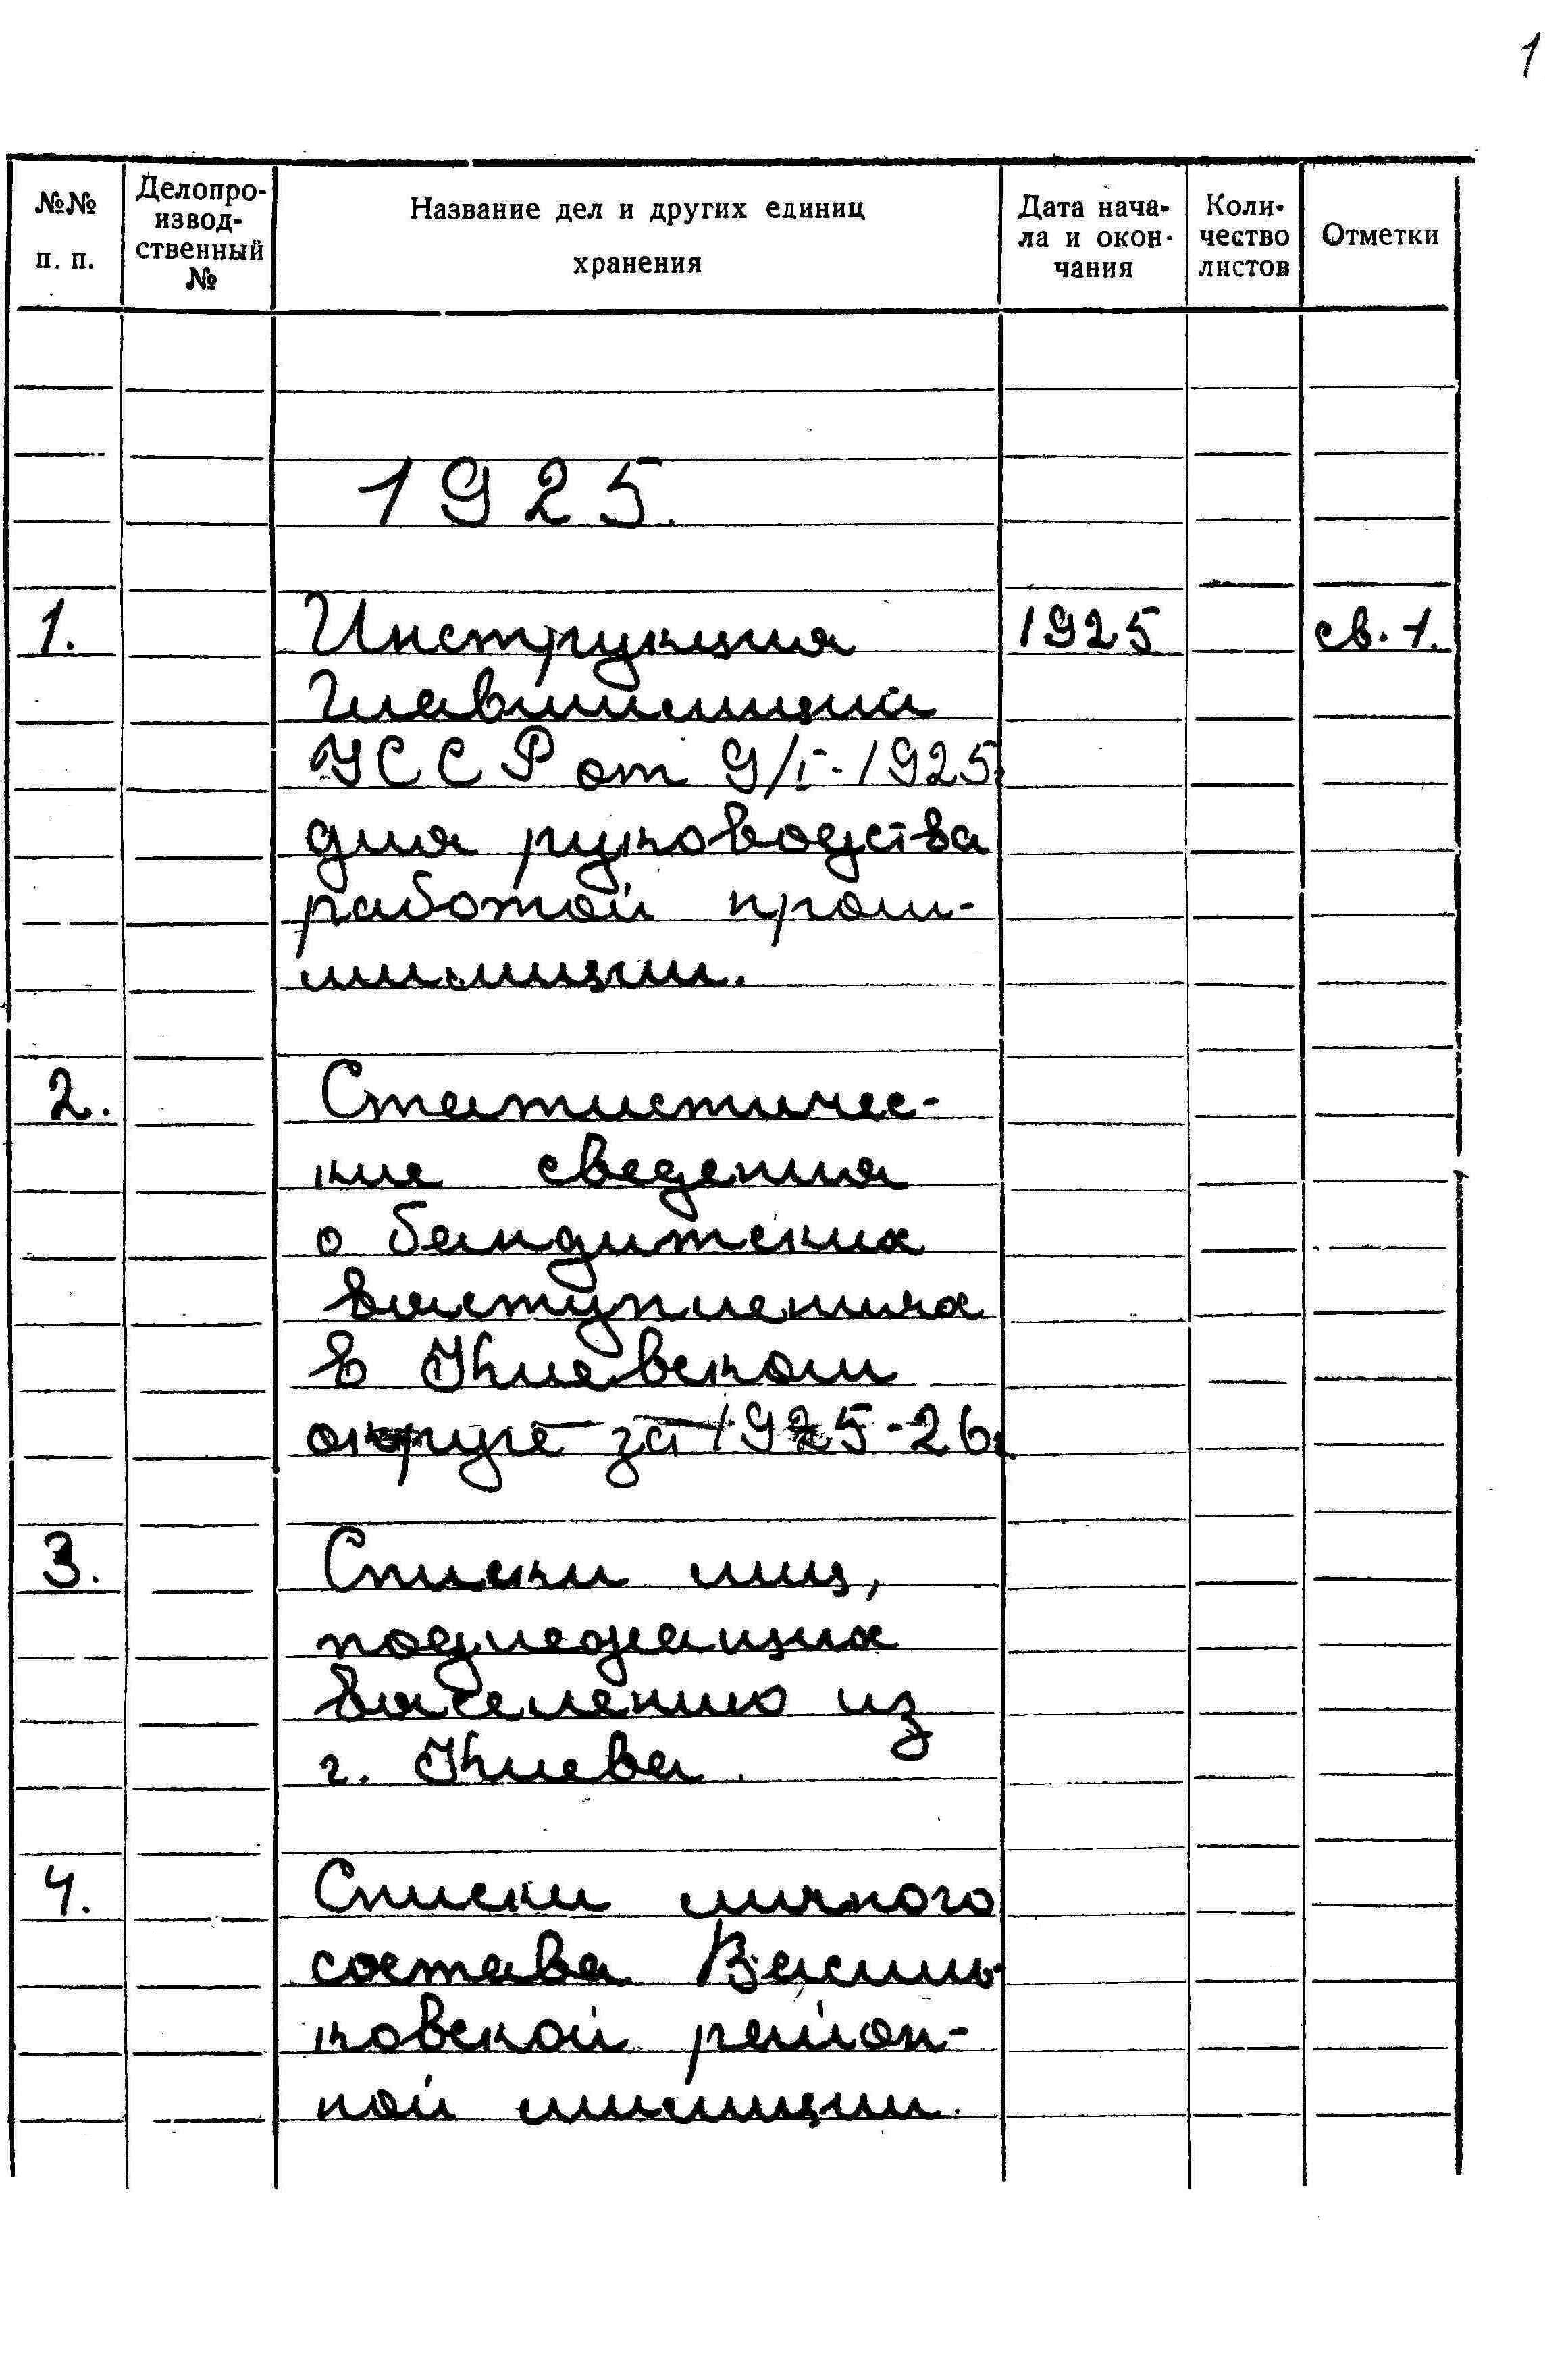 1
№№ п. п.
Делопро-
извод-
ственный
№
Название дел и других единиц
хранения
Дата нача-
ла и окон-
чания
Коли-
чество
листов
Отметки
1925.
1. Инструкция 1925 св. 1.
Главмилиции
УССР от 9/I-1925г.
для руководства
работой пром-
милиции.
2. Статистичес-
кие сведения
о бандитских
выступлениях
в Киевском
округе за 1925-26г.
3. Списки лиц,
подлежащих
выселению из
г. Киева.
4. Списки личного
состава Василь-
ковской район-
ной милиции.